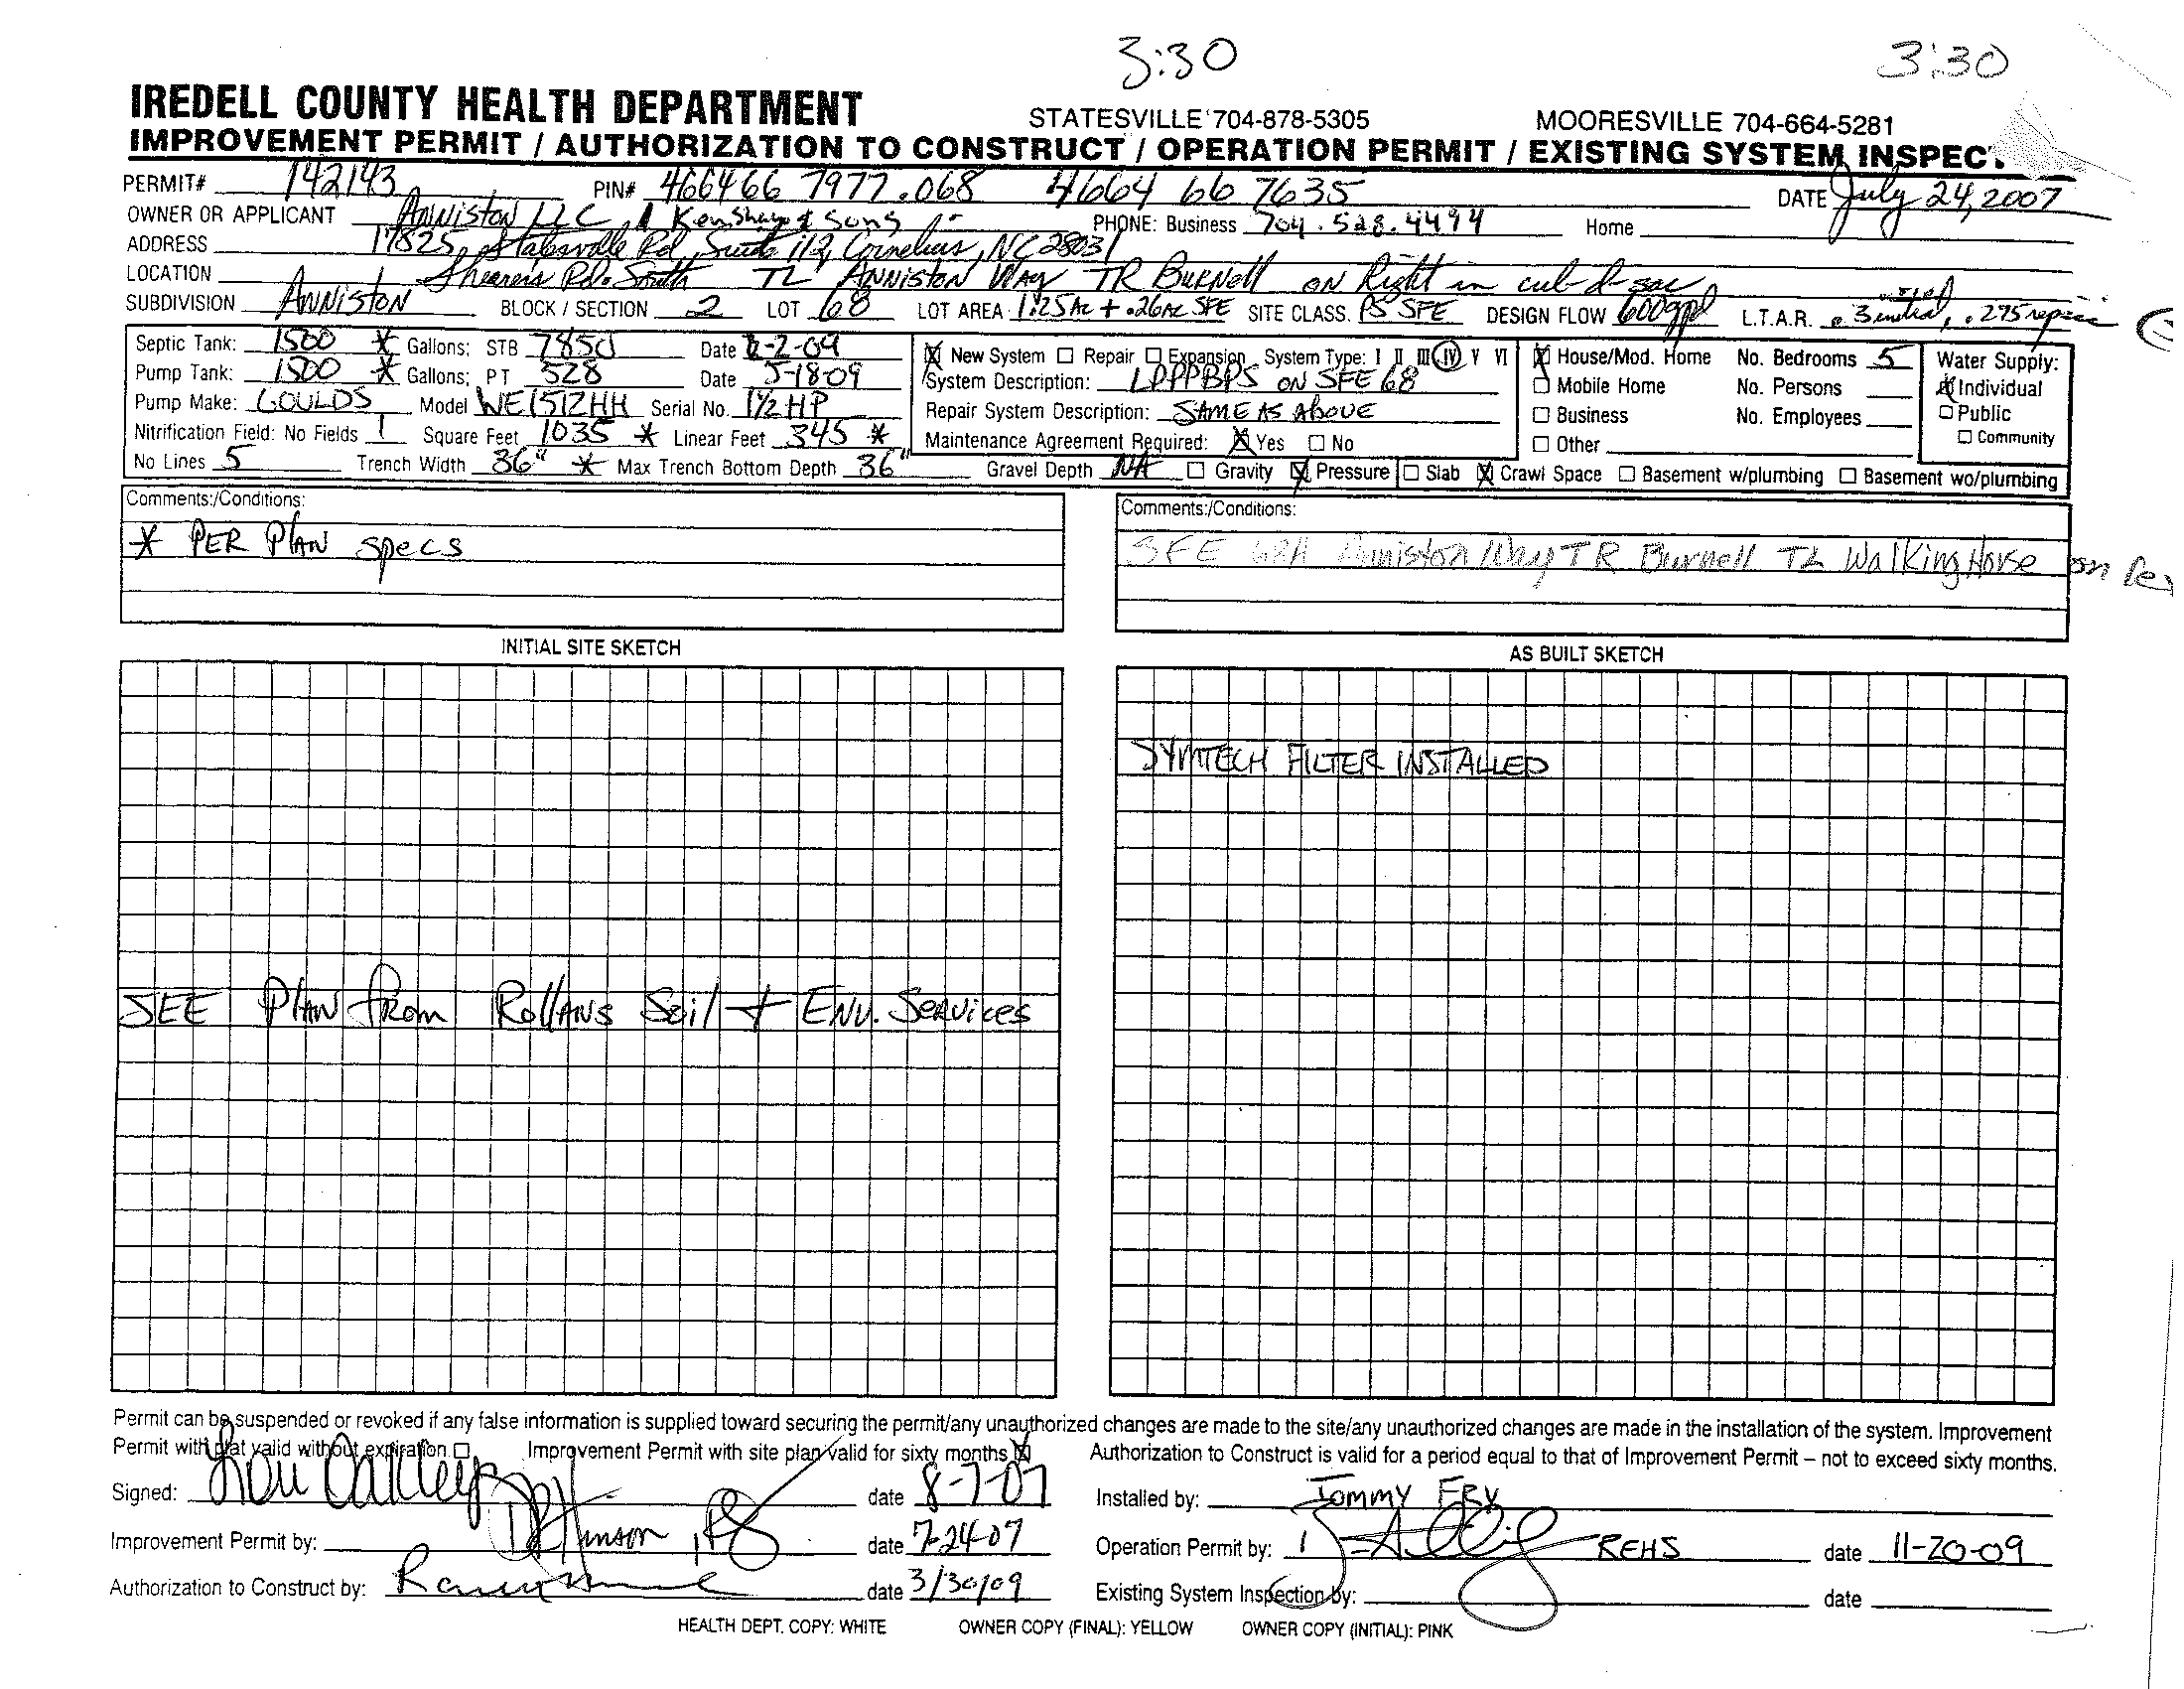 3:30 3:30
IREDELL COUNTY HEALTH DEPARTMENT STATESVILLE 704-878-5305 MOORESVILLE 704-664-5281
IMPROVEMENT PERMIT / AUTHORIZATION TO CONSTRUCT / OPERATION PERMIT / EXISTING SYSTEM INSPEC
PERMIT# 142143 PIN# 466466 7977.068 4664 66 7635 DATE July 24, 2007
OWNER OR APPLICANT Anniston LLC Ken Sharpe & Sons PHONE: Business 704.528.4494 Home
ADDRESS 17825 Statesville Rd, Suite 112, Cornelius, NC 28031
LOCATION Shearers Rd. South TL Anniston Way TR Burnell on Right in cul-d-sac
SUBDIVISION Anniston BLOCK / SECTION 2 LOT 68 LOT AREA 1.25 Ac + .26 Ac SFE SITE CLASS. PS SFE DESIGN FLOW 600gpd L.T.A.R. .3 initial, .275 repair
Septic Tank: 1500 * Gallons; STB 785 Date 2-09
Pump Tank: 1500 * Gallons; PT 528 Date 5-18-09
Pump Make: GOULDS Model WE1512HH Serial No. 1½ HP
Nitrification Field: No Fields 1 Square Feet 1035 * Linear Feet 345 *
No Lines 5 Trench Width 36" * Max Trench Bottom Depth 36" Gravel Depth NA Gravity Pressure Slab Crawl Space Basement w/plumbing Basement wo/plumbing
New System Repair Expansion System Type: I II III IV V VI
System Description: LPPPBPS ON SFE 68
Repair System Description: SAME AS ABOVE
Maintenance Agreement Required: Yes No
House/Mod. Home No. Bedrooms 5
Mobile Home No. Persons
Business No. Employees
Other
Water Supply:
Individual
Public
Community
Comments:/Conditions:
* PER PLAN specs
Comments:/Conditions:
SFE 68A Anniston Way TR Burnell TL Walking Horse on
INITIAL SITE SKETCH
SEE PLAN from Rollans Soil + ENV. Services
AS BUILT SKETCH
SYMTECH FILTER INSTALLED
Permit can be suspended or revoked if any false information is supplied toward securing the permit/any unauthorized changes are made to the site/any unauthorized changes are made in the installation of the system. Improvement
Permit with plat valid without expiration Improvement Permit with site plan valid for sixty months Authorization to Construct is valid for a period equal to that of Improvement Permit – not to exceed sixty months.
Signed: Lou Oakley date 8-7-07 Installed by: Tommy FRY
Improvement Permit by: date 7-24-07 Operation Permit by: REHS date 11-20-09
Authorization to Construct by: date 3/30/09 Existing System Inspection by: date
HEALTH DEPT. COPY: WHITE OWNER COPY (FINAL): YELLOW OWNER COPY (INITIAL): PINK